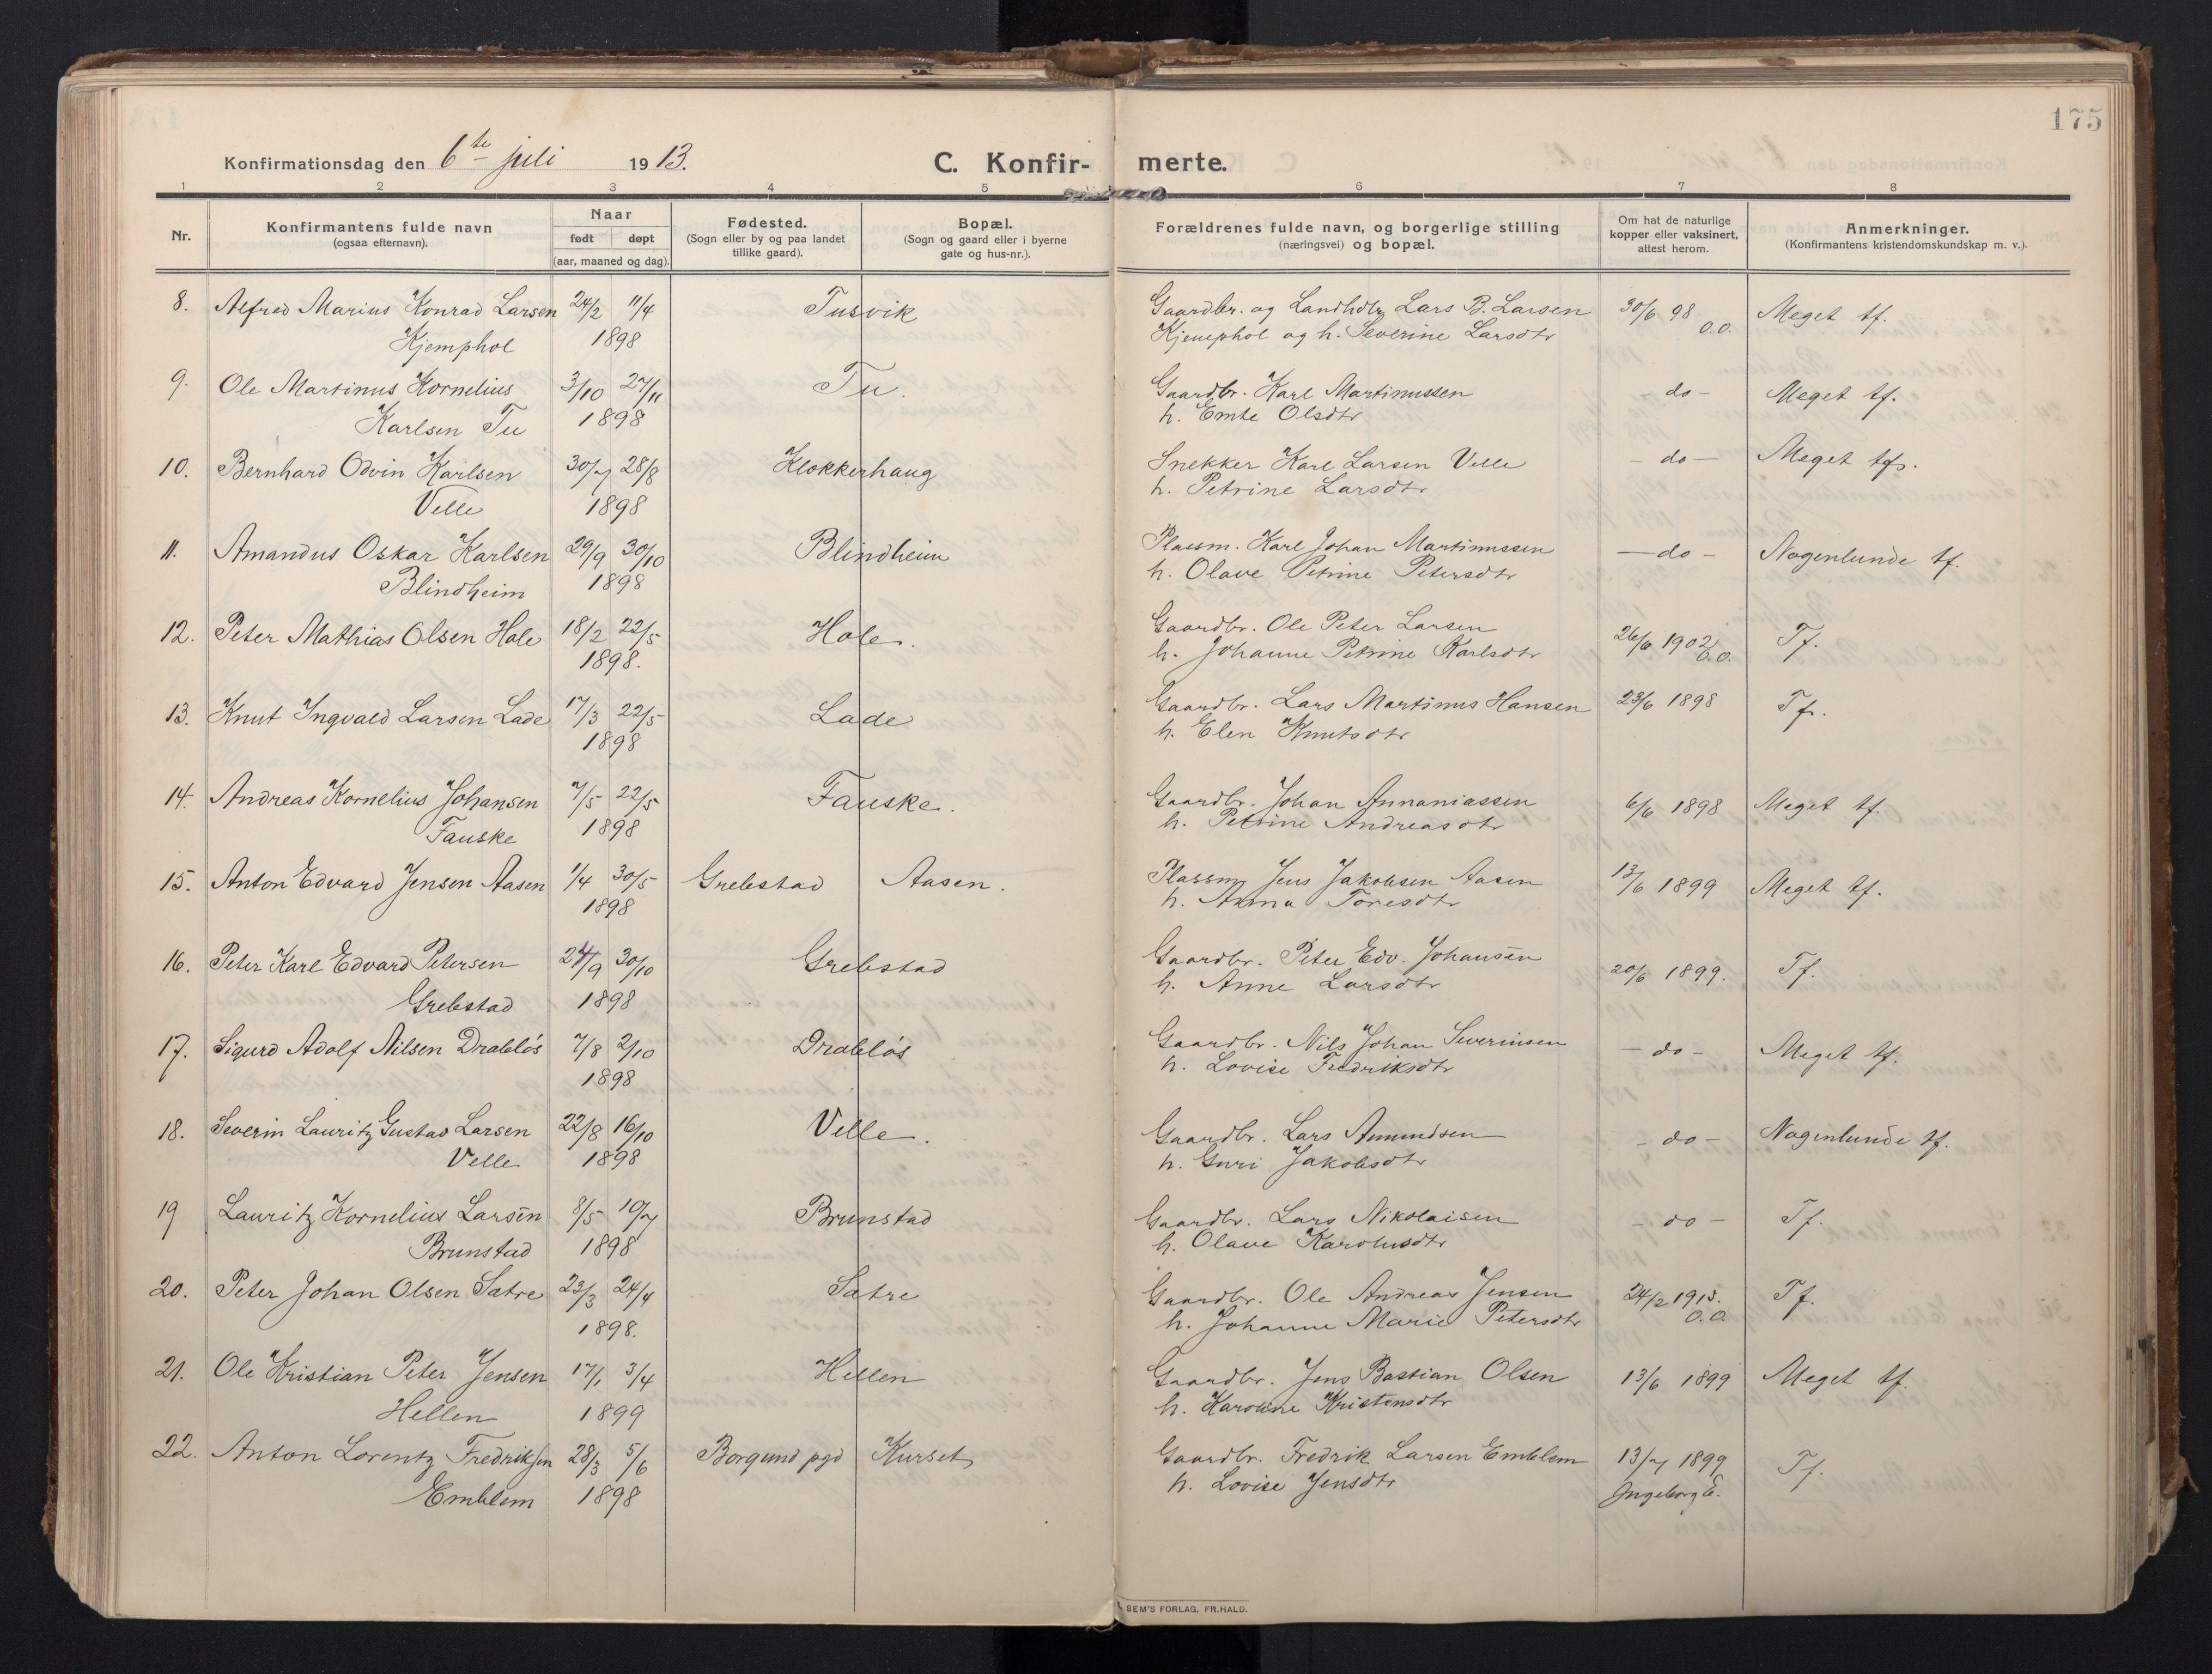 175
Konfirmationsdag den 6te juli 1913. C. Konfir- merte.
1 2 3 4 5 6 7 8
Nr. Konfirmantens fulde navn (ogsaa efternavn). Naar født døpt (aar, maaned og dag). Fødested. (Sogn eller by og paa landet tillike gaard). Bopæl. (Sogn og gaard eller i byerne gate og hus-nr.). Forældrenes fulde navn, og borgerlige stilling (næringsvei) og bopæl. Om hat de naturlige kopper eller vaksinert, attest herom. Anmerkninger. (Konfirmantens kristendomskundskap m. v.).
8. Alfred Marius Konrad Larsen 24/2 11/4 Tusvik Gaardbr. og Landhdlr Lars B. Larsen 30/6 98 O.O. Meget tf.
Kjemphol 1898 Kjemphol og h. Severine Larsdtr
9. Ole Martinus Kornelius 3/10 27/11 Tu. Gaardbr. Karl Martinussen - do - Meget tf.
Karlsen Tu 1898 h. Emte Olsdtr
10. Bernhard Odvin Karlsen 30/7 28/8 Klokkerhaug Snekker Karl Larsen Velle - do - Meget tfs.
Velle 1898 h. Petrine Larsdtr
11. Amandus Oskar Karlsen 29/9 30/10 Blindheim Plassm. Karl Johan Martinussen - do - Nogenlunde tf.
Blindheim 1898 h. Olave Petrine Petersdtr
12. Peter Mathias Olsen Hole 18/2 22/5 Hole. Gaardbr. Ole Peter Larsen 26/6 1902 O.O. Tf.
1898. h. Johanne Petrine Karlsdtr
13. Knut Ingvald Larsen Lade 17/3 22/5 Lade Gaardbr. Lars Martinus Hansen 23/6 1898 Tf.
1898 h. Elen Knutsdtr
14. Andreas Kornelius Johansen 7/5 22/5 Fauske. Gaardbr. Johan Annaniassen 6/6 1898 Meget tf.
Fauske 1898 h. Petrine Andreasdtr
15. Anton Edvard Jensen Aasen 1/4 30/5 Grebstad Aasen. Plassm. Jens Jakobsen Aasen 13/6 1899 Meget tf.
1898 h. Anna Toresdtr
16. Peter Karl Edvard Petersen 24/9 30/10 Grebstad Gaardbr. Peter Edv. Johansen 20/6 1899. Tf.
Grebstad 1898 h. Anne Larsdtr
17. Sigurd Adolf Nilsen Drabløs 7/8 2/10 Drabløs Gaardbr. Nils Johan Severinsen - do - Meget tf.
1898 h. Lovise Fredriksdtr
18. Severin Lauritz Gustav Larsen 22/8 16/10 Velle. Gaardbr. Lars Amundsen - do - Nogenlunde tf.
Velle 1898 h. Guri Jakobsdtr
19 Lauritz Kornelius Larsen 8/5 10/7 Brunstad Gaardbr. Lars Nikolaisen - do - Tf.
Brunstad 1898 h. Olave Karolusdtr
20. Peter Johan Olsen Satre 23/3 24/4 Satre Gaardbr. Ole Andreas Jensen 24/2 1913. O.O. Tf.
1898. h. Johanne Marie Petersdtr
21. Ole Kristian Peter Jensen 17/1 3/4 Hellen Gaardbr. Jens Bastian Olsen 13/6 1899 Meget tf.
Hellen 1899 h. Karoline Kristensdtr
22. Anton Lorentz Fredriksen 28/3 5/6 Borgund pgd Kurset Gaardbr. Fredrik Larsen Emblem 13/7 1899 Tf.
Emblem 1898 h. Lovise Jensdtr Ingeborg E.
SEM'S FORLAG, FR. HALD.